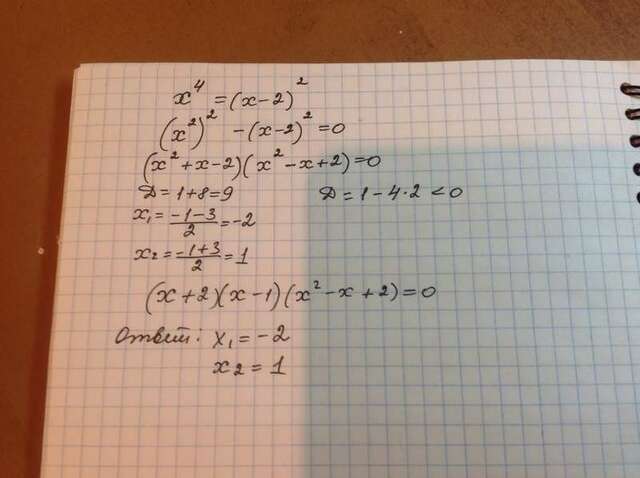 x⁴ = (x-2)²
(x²)² - (x-2)² = 0
(x² + x - 2)(x² - x + 2) = 0
D = 1+8 = 9 D = 1 - 4·2 < 0
x₁ = (-1-3)/2 = -2
x₂ = (-1+3)/2 = 1
(x+2)(x-1)(x² - x + 2) = 0
Ответ: x₁ = -2
x₂ = 1